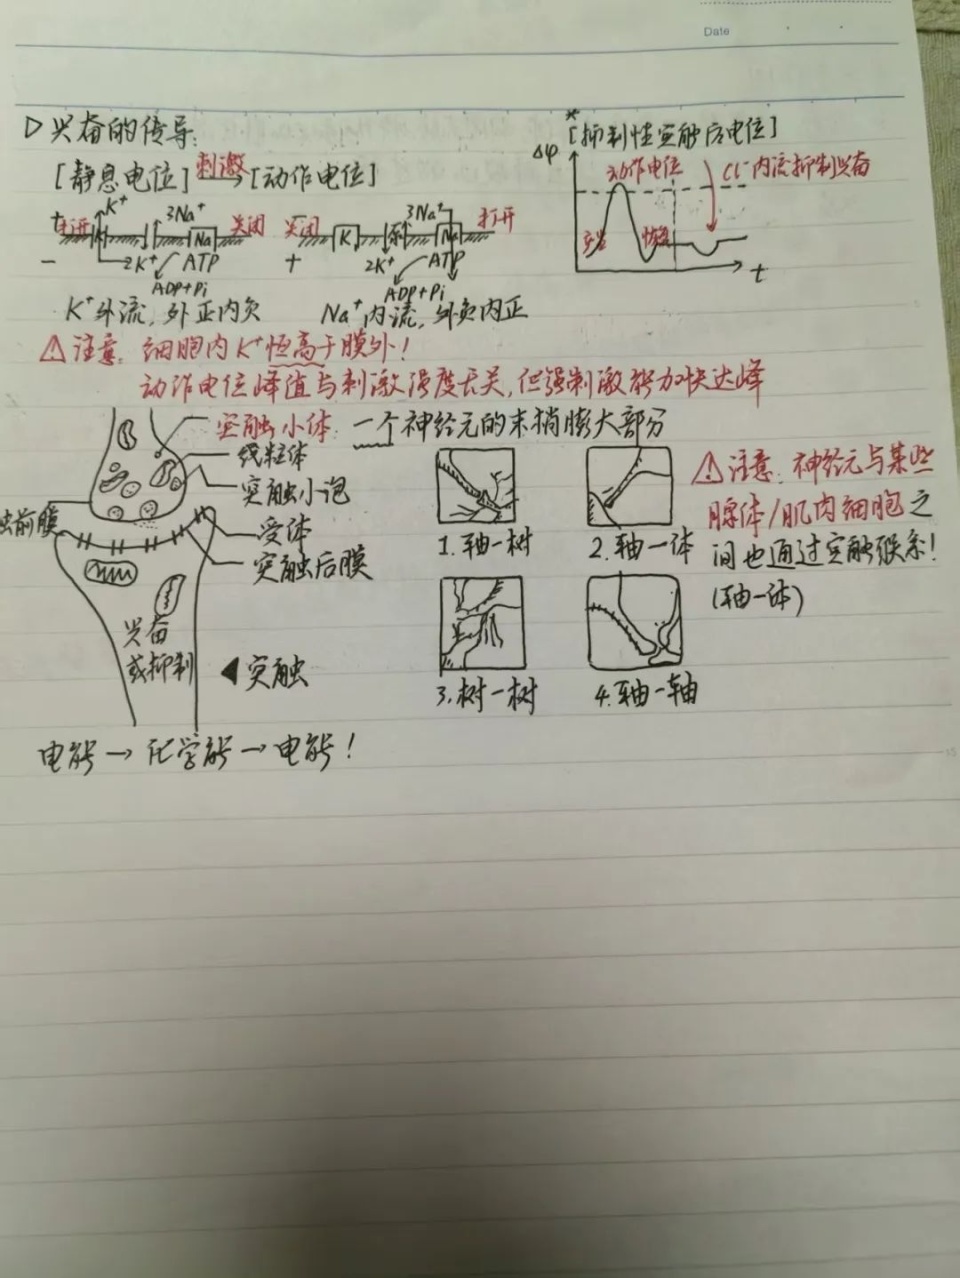 Date
▷兴奋的传导：
*[抑制性突触后电位]
[静息电位] 刺激→ [动作电位]
Δφ
动作电位
Cl⁻内流抑制兴奋
t
+ 打开 K⁺ 3Na⁺ Na 关闭
− 2K⁺ ATP
ADP+Pi
关闭 K 泵 3Na⁺ Na 打开
+ 2K⁺ ATP
ADP+Pi
K⁺外流，外正内负
Na⁺内流，外负内正
⚠注意：细胞内K⁺恒高于膜外！
动作电位峰值与刺激强度无关，但强刺激能加快达峰
突触小体：一个神经元的末梢膨大部分
线粒体
突触小泡
触前膜
受体
突触后膜
兴奋
或抑制
◀突触
1.轴-树
2.轴-体
3.树-树
4.轴-轴
⚠注意：神经元与某些
腺体/肌肉细胞之
间也通过突触联系！
(轴-体)
电能→化学能→电能！